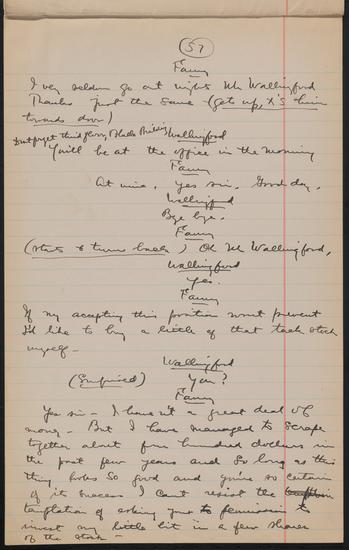 57
Fanny
I very seldom go out nights Mr Wallingford
Thanks just the same - (gets up, X's him
towards door)
Wallingford
Dont forget third floor, Building
You'll be at the office in the morning
Fanny
At nine, Yes sir, Good day.
Wallingford
Bye bye.
Fanny
(starts & turns back) Oh Mr Wallingford,
Wallingford
Yes.
Fanny
If my accepting this position wont prevent
I'd like to buy a little of that tack stock
myself -
Wallingford
(Surprised) You?
Fanny
Yes sir - I haven't a great deal of
money - But I have managed to scrape
together about four hundred dollars in
the past few years and so long as this
thing looks so good and you're so certain
of its success I cant resist the
temptation of asking your permission to
invest my little bit in a few shares
of the stock -